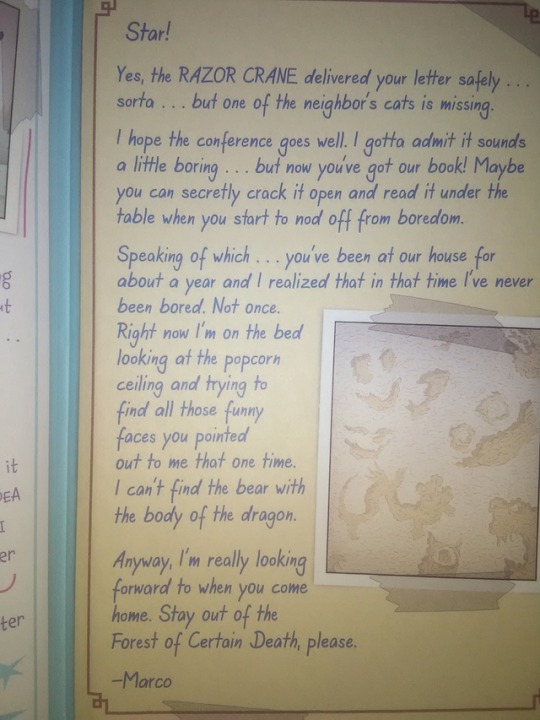 Star!
Yes, the RAZOR CRANE delivered your letter safely . . .
sorta . . . but one of the neighbor's cats is missing.
I hope the conference goes well. I gotta admit it sounds
a little boring . . . but now you've got our book! Maybe
you can secretly crack it open and read it under the
table when you start to nod off from boredom.
Speaking of which . . . you've been at our house for
about a year and I realized that in that time I've never
been bored. Not once.
Right now I'm on the bed
looking at the popcorn
ceiling and trying to
find all those funny
faces you pointed
out to me that one time.
I can't find the bear with
the body of the dragon.
Anyway, I'm really looking
forward to when you come
home. Stay out of the
Forest of Certain Death, please.
–Marco
. .
it
I